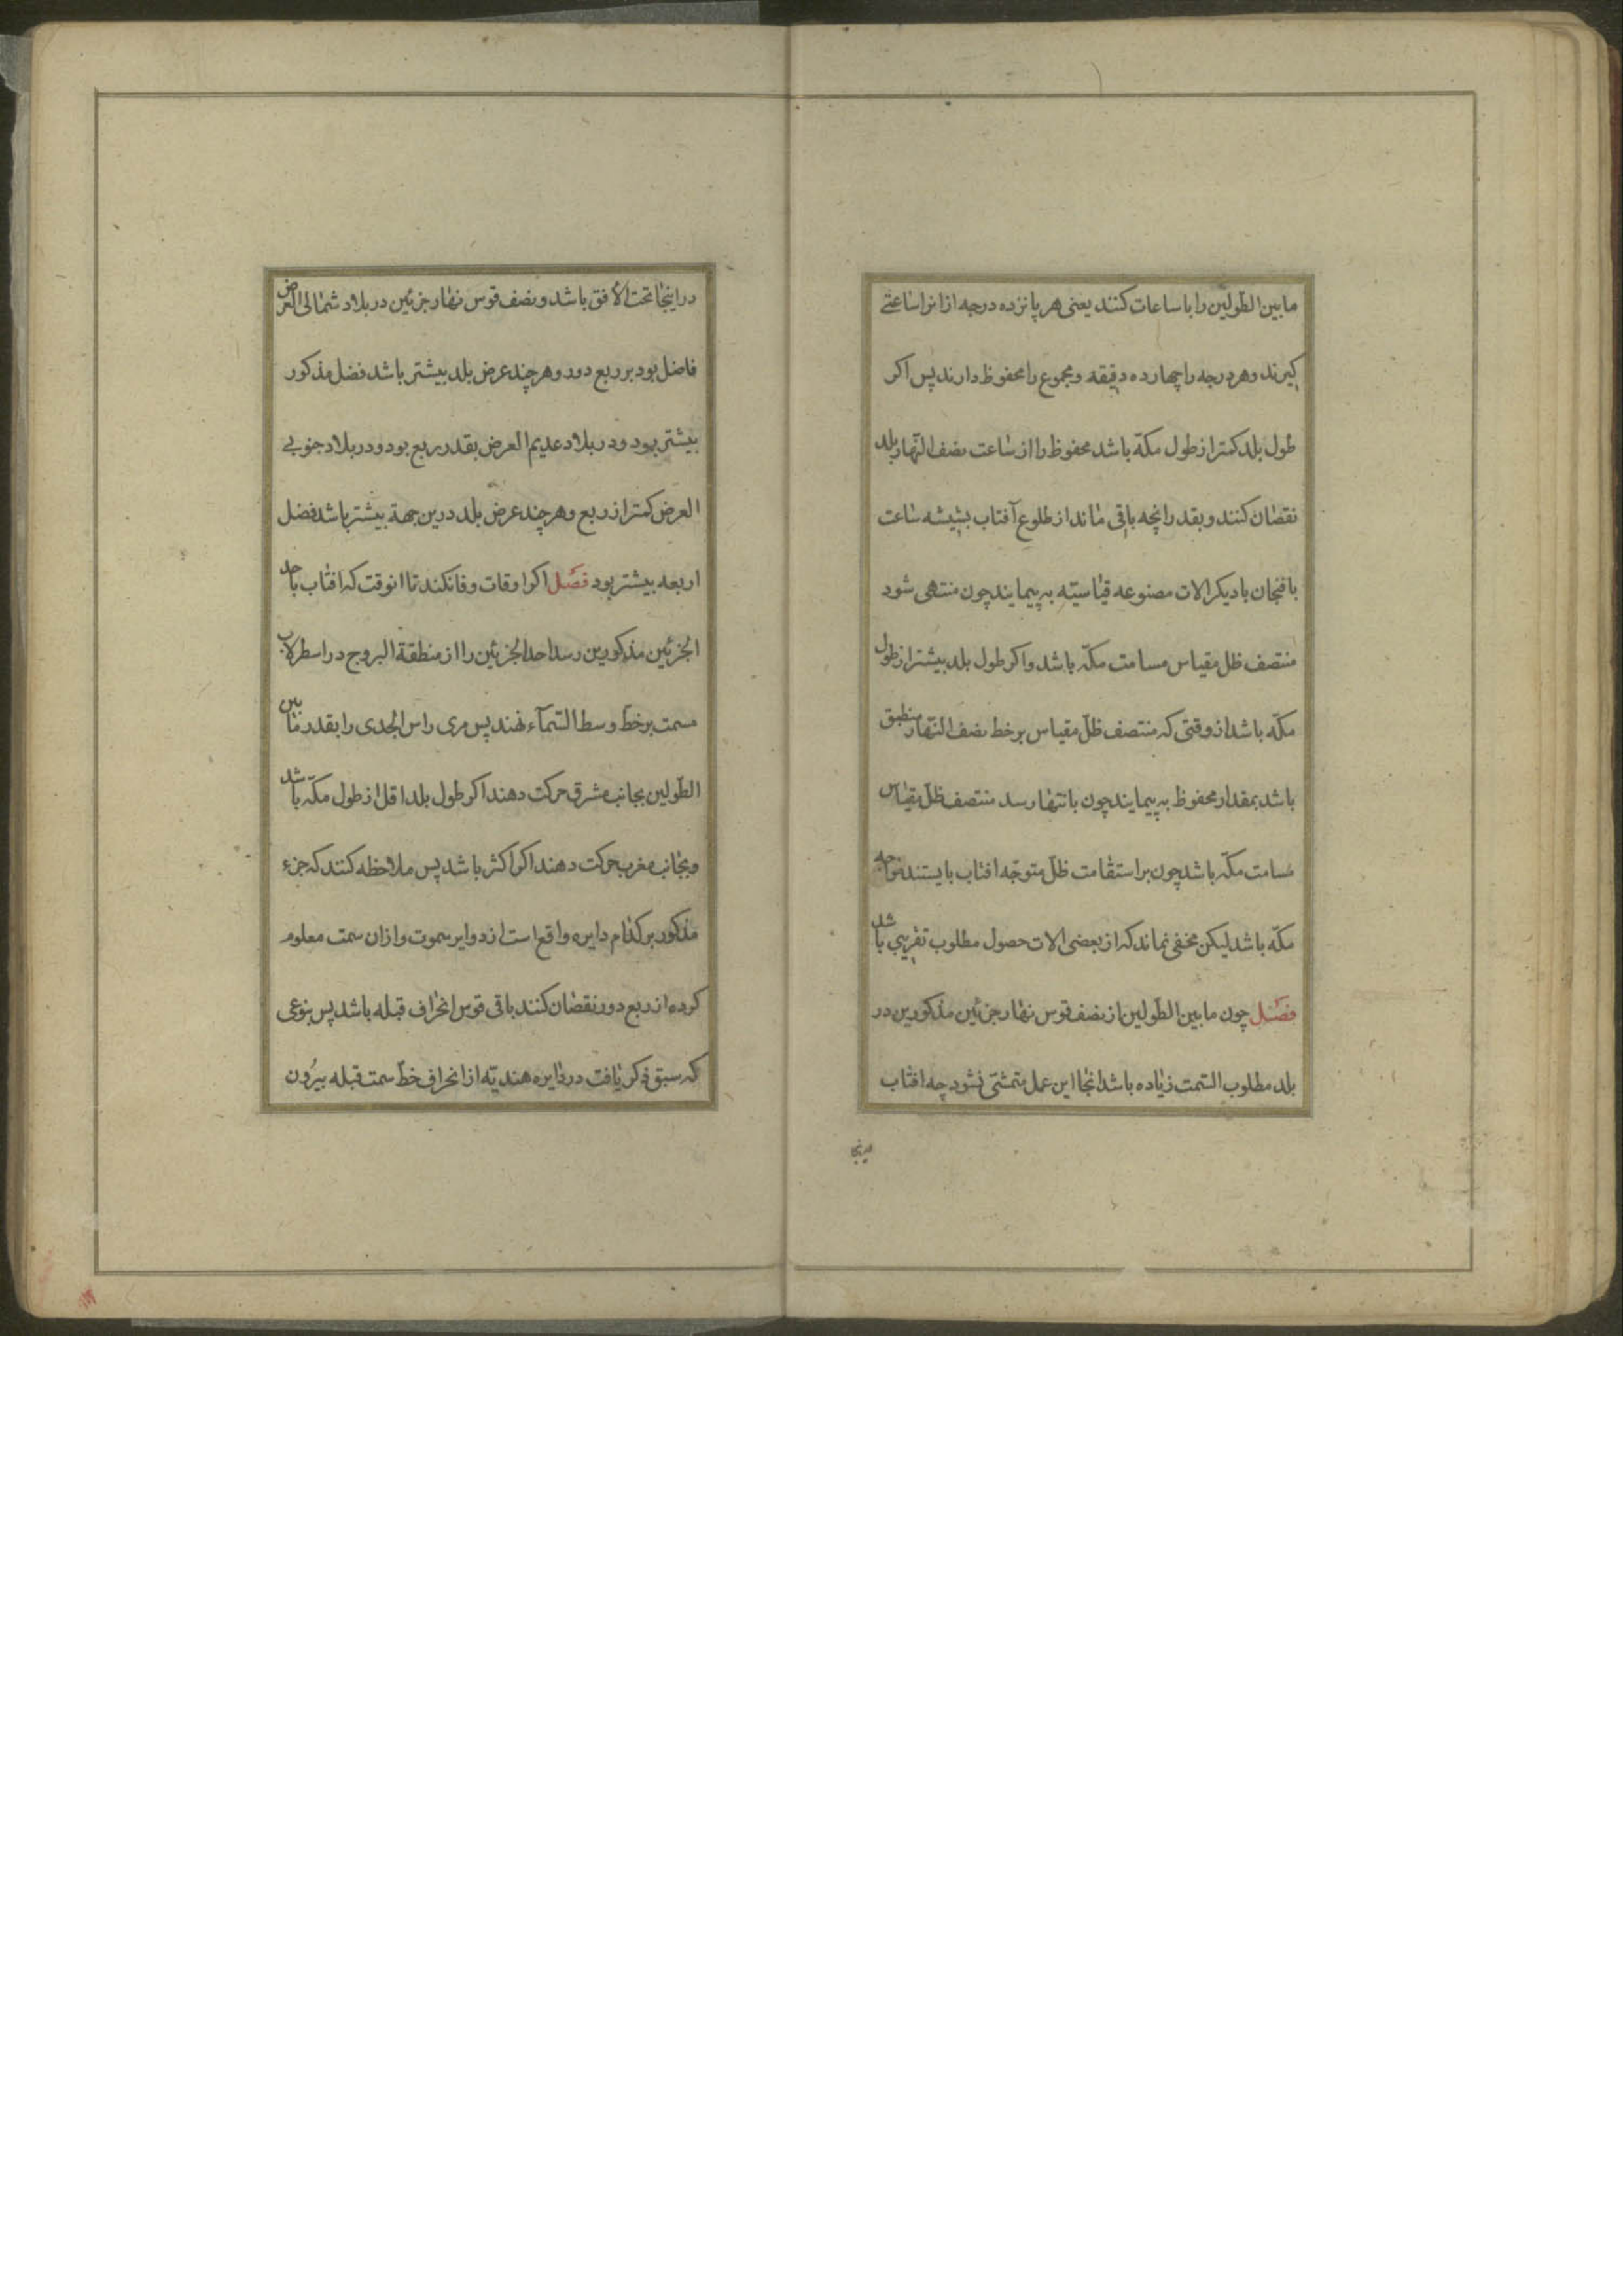 مابین الطولین را با ساعات کنند یعنی هر پانزده درجه از انرا ساعتے
کیرند و هر درجه را چهارده دقیقه و مجموع را محفوظ دارند پس اکر
طول بلد کمتر از طول مکّه باشد محفوظ را از ساعت نصف النّهار بلد
نقصان کنند و بقدر انچه باقی ماند از طلوع آفتاب بشیشه ساعت
با فنجان با دیکر الات مصنوعه قیاسیّه به پیمایند چون منتهی شود
منتصف ظل مقیاس مسامت مکّه باشد و اکر طول بلد بیشتر از طول
مکّه باشد از وقتی که منتصف ظلّ مقیاس بر خط نصف النّهار منطبق
باشد بمقدار محفوظ به پیمایند چون بانتها رسد منتصف ظلّ مقیاس
مسامت مکّه باشد چون بر استقامت ظلّ متوجّه افتاب بایستند مواجه
مکّه باشد لیکن مخفی نماند که از بعضی الات حصول مطلوب تقریبی باشد
فصل چون مابین الطّولین از نصف قوس نهار جزئین مذکورین در
بلد مطلوب السّمت زیاده باشد انجا این عمل متمشّی نشود چه افتاب
درینجا
در اینجا تحت الافق باشد و نصف قوس نهار جزئین در بلاد شمالی العرض
فاضل بود بر ربع دور و هر چند عرض بلد بیشتر باشد فضل مذکور
بیشتر بود و در بلاد عدیم العرض بقدر ربع بود و در بلاد جنوبے
العرض کمتر از ربع و هر چند عرض بلد درین جهة بیشتر باشد فضل
اربعه بیشتر بود فصل اکر اوقات وفا نکند تا انوقت که افتاب باحد
الجزئین مذکورین رسد احد الجزئین را از منطقة البروج در اسطرلاب
سمت بر خطّ وسط السّمآء نهند پس مری راس الجدی را بقدر مابین
الطّولین بجانب مشرق حرکت دهند اکر طول بلد اقل از طول مکّه باشد
و بجانب مغرب حرکت دهند اکر اکثر باشد پس ملاحظه کنند که جزء
مذکور بر کدام دایره واقع است از دوایر سموت و ازان سمت معلوم
کرده از ربع دور نقصان کنند باقی قوس انحراف قبله باشد پس بنوعی
که سبق ذکر یافت در دایره هندیّه از انحراف خطّ سمت قبله بیرون